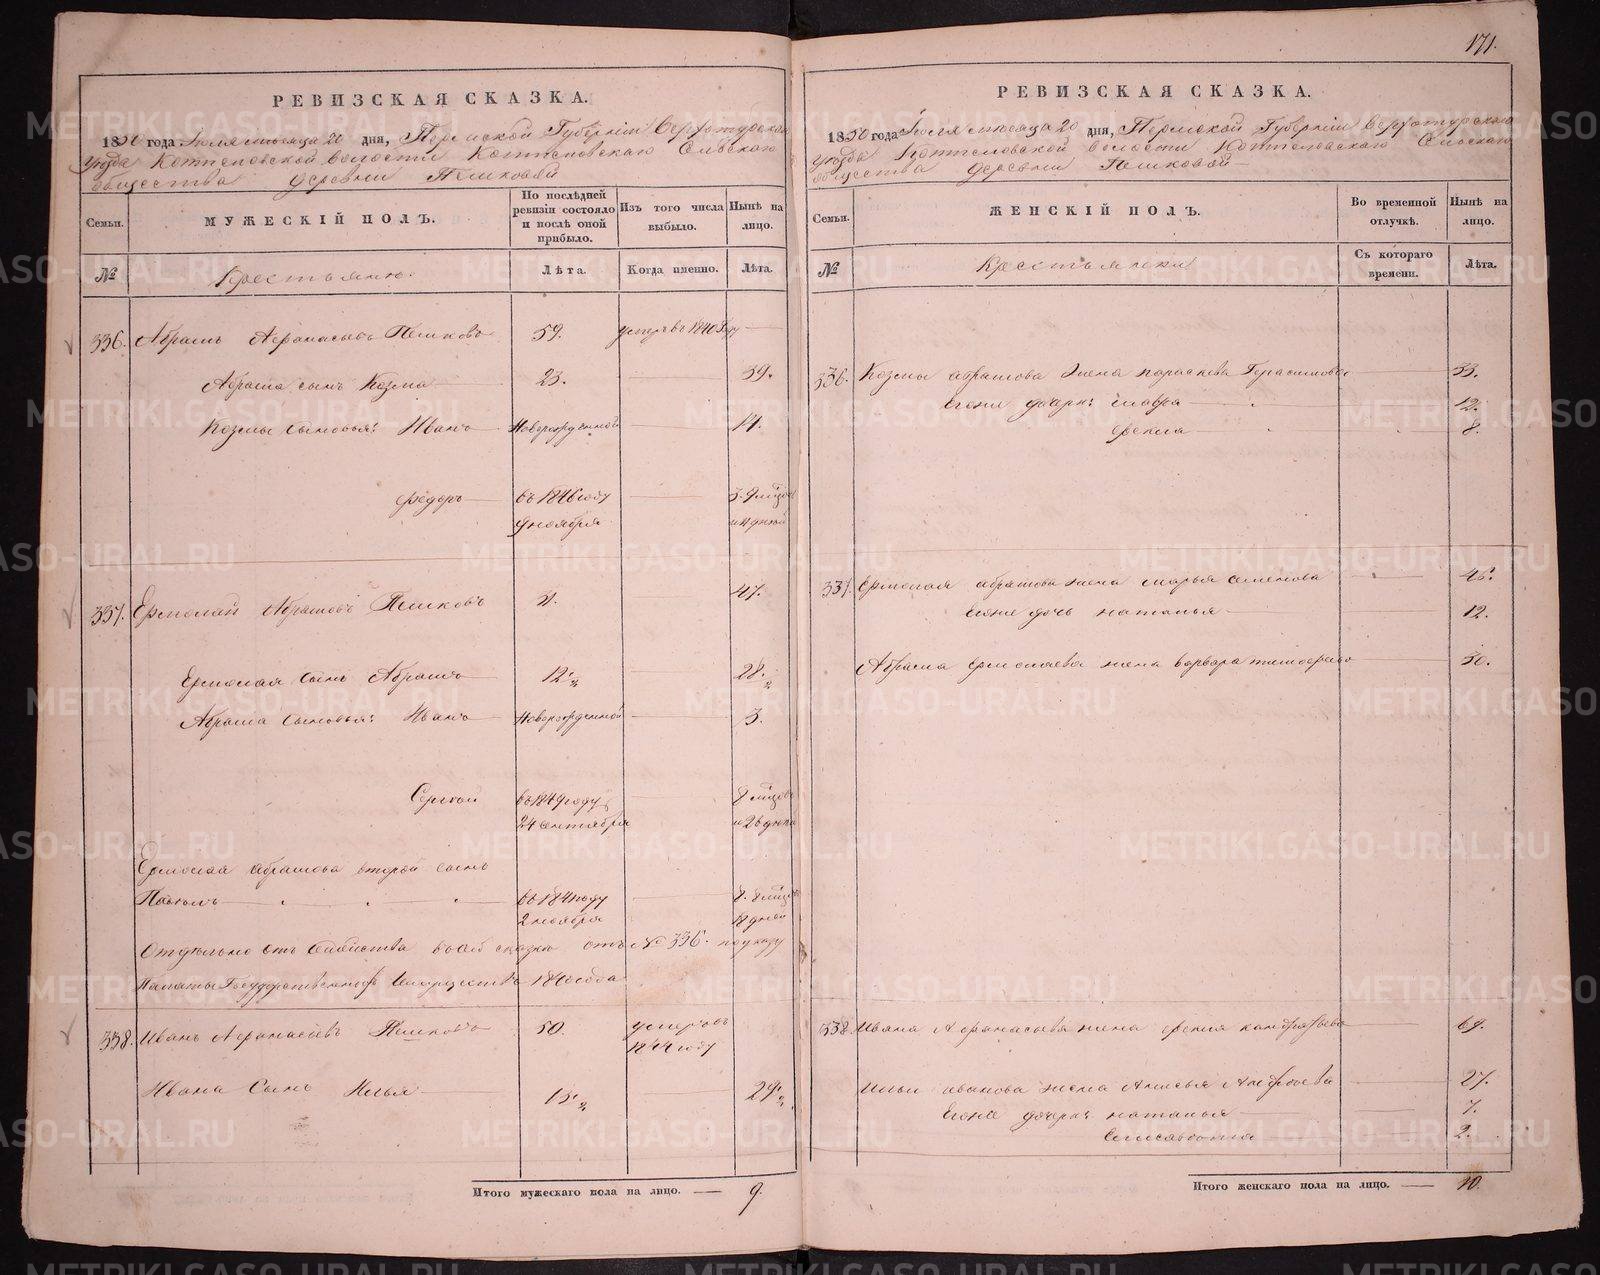 171.
РЕВИЗСКАЯ СКАЗКА.
1850 года Июля месяца 20 дня, Пермской Губерніи Верхотурскаго
уезда Коптеловской волости Коптеловскаго Сельскаго
общества деревни Пешковой
Семьи.
МУЖЕСКІЙ ПОЛЪ.
По послѣдней ревизіи состояло и послѣ оной прибыло.
Изъ того числа выбыло.
Нынѣ на лицо.
№
Крестьянъ.
Лѣта.
Когда именно.
Лѣта.
336. Абрамъ Афанасьевъ Пешковъ 59. умеръ въ 1840 году
Абрама сынъ Козма 23. 39.
Козмы сыновья: Иванъ Новорожденной 14.
Федоръ въ 1846 году 3. 8 мѣцов
9 ноября и 11 дней
337. Ермолай Абрамовъ Пешковъ 47.
Ермолая сынъ Абрамъ 12 ½ 28 ½
Абрама сыновья: Иванъ Новорожденной 3.
Сергей въ 1849 году 8 мѣцовъ
24 сентября и 26 дней
Ермолая Абрамова второй сынъ
Павелъ въ 1841 году 8. 8 мѣцов
2 ноября 18 дней
Отдельно отъ семейства въ сей сказке отъ № 336. по указу
Палаты Государственныхъ Имуществъ 1840 года
338. Иванъ Афанасьевъ Пешковъ 50. умеръ въ
1844 году
Ивана Сынъ Илья 13 ½ 29 ½
Итого мужескаго пола на лицо. — 9.
РЕВИЗСКАЯ СКАЗКА.
1850 года Июля месяца 20 дня, Пермской Губерніи Верхотурскаго
уезда Коптеловской волости Коптеловскаго Сельскаго
общества деревни Пешковой
Семьи.
ЖЕНСКІЙ ПОЛЪ.
Во временной отлучкѣ.
Нынѣ на лицо.
№
Крестьянки
Съ котораго времени.
Лѣта.
336. Козмы Абрамова жена Параскева Герасимова 33.
Ихъ дочери: Мавра 12.
Фекла 8.
337. Ермолая Абрамова жена Марья Семенова 45.
Ихъ дочь Наталья 12.
Абрама Ермолаева жена Варвара Тимофеева 30.
338. Ивана Афанасьева жена Фекла 69.
Ильи Иванова жена Анисья 27.
дочери: Наталья 7.
Елисавета 2.
Итого женскаго пола на лицо. — 10.
METRIKI.GASO-URAL.RU